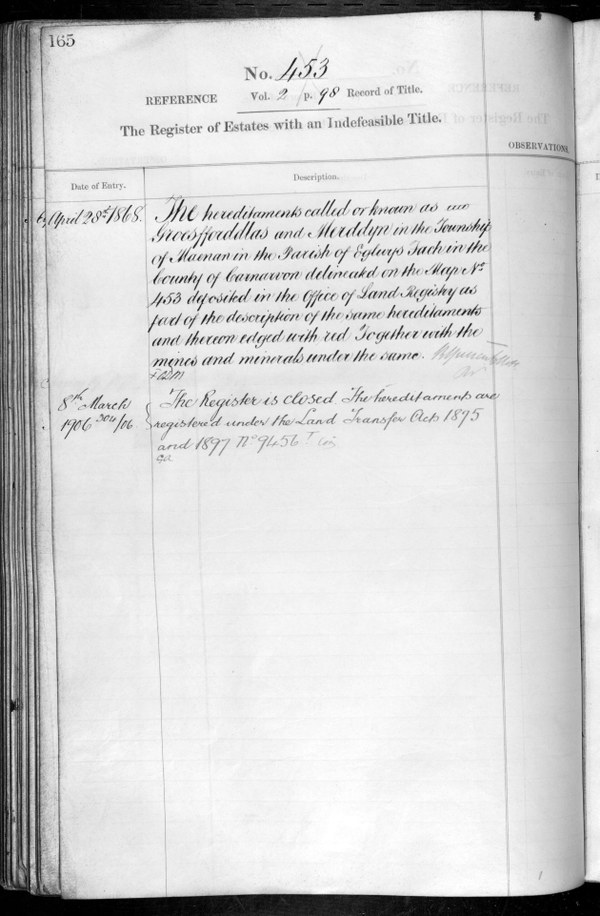 165
No. 453
REFERENCE Vol. 2 p. 98 Record of Title.
The Register of Estates with an Indefeasible Title.
OBSERVATIONS.
Date of Entry.
Description.
April 28th 1868.
The hereditaments called or known as
Groesfforddlas and Merddyn in the Township
of Maenan in the Parish of Eglwys Fach in the
County of Carnarvon delineated on the Map No
453 deposited in the Office of Land Registry as
part of the description of the same hereditaments
and thereon edged with red Together with the
mines and minerals under the same.
8th March
1906 304/06
The Register is closed The hereditaments are
registered under the Land Transfer Acts 1875
and 1897 No 9456